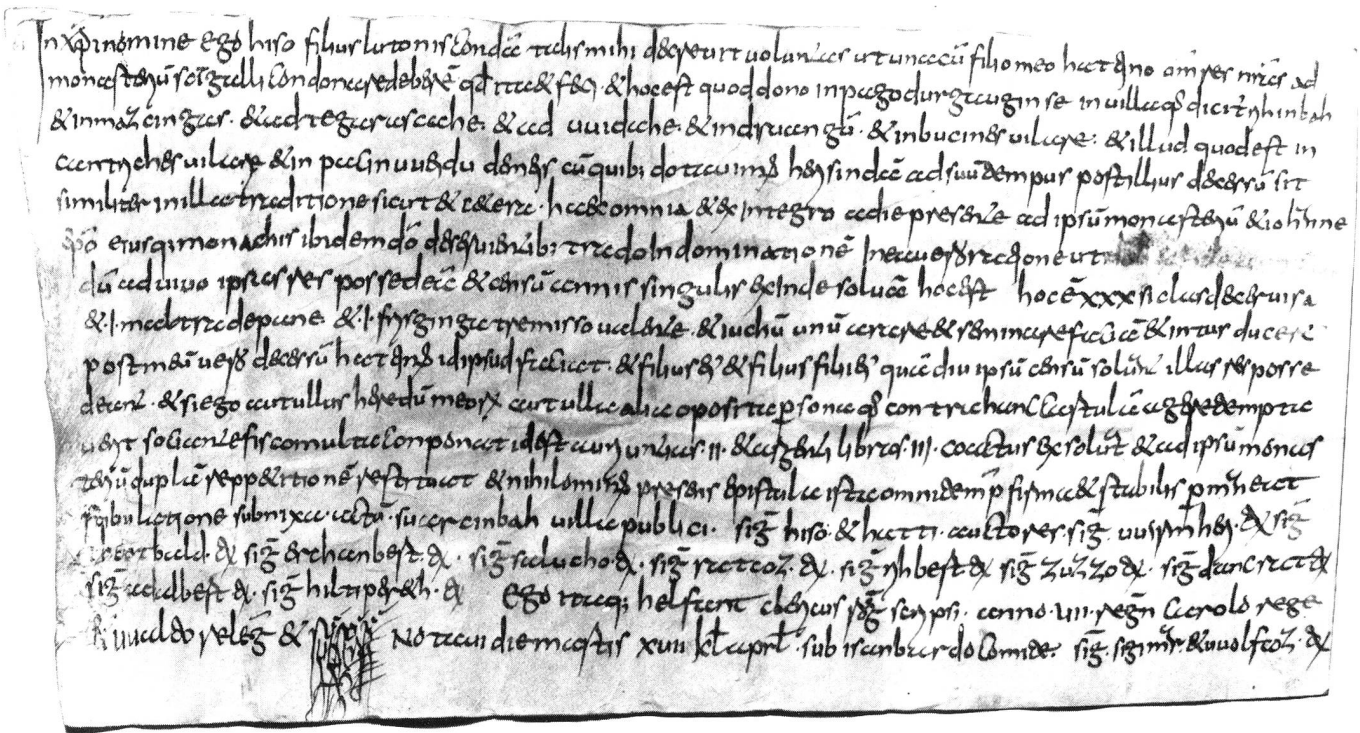 In xp̄i nomine ego hiso filius lutonis condā talis mihi decreuit uoluntas ut una cū filio meo hattano om̄ res n̄ras ad
monasteriū sc̄i galli condonare deberē qd̄ ita & feci & hoc est quod dono in pago durgauginse in uilla qd̄ dicit
& in mazcingas · & ad tegarascahe & ad uuidahe & in druangū · & in bucines uilare · & illud quod est in
uilare & in paclinuuerdu cū quibi dotauimus hersindā ad suū tempus post illius decessū sit
similiter in illa traditione sicut & cetera · haec omnia & ex integro a die presente ad ipsū monasteriū & iohanne
ep̄o eiusqi monachis ibidem dō deseruientibi trado in dominationē In ea uero ratione ut
dū aduiuo ipsas res possedeā & censū annis singulis exinde soluā hoc est hoc ē xxx siclas de ceruisa
& · I · maltra de pane · & · I · frisginga tremisso ualente · & iuchū unū arare & seminare faciā & intus ducere
post meū uero decessū hattano id ipsud faciat · & filius ei & filius filii ei quādiu ipsū censū soluer illas res posse
deant · & si ego aut ullus heredū meorū aut ulla alia oposita persona qd̄ contra hanc cartulā agere temta
uerit socianti fisco multa conponat id est auri untias · II · & argenti libras · III · coactus exsoluat & ad ipsū monas
teriū duplā reppetitionē restituat & nihilominus presens epistula ista omni tem̄p firma & stabilis permaneat
stibulatione subnixa · actū · suarcinbah uilla publici · sig̅ hiso · & hatti · auctores · sig̅ · sig̅
sig̅ erchanbest · sig̅ salucho · sig̅ ratcoz · sig̅ sig̅ zuzzo · sig̅ dancrat
sig̅ adalbest · sig̅ hiltipereh · Ego itaq; helfant clericus rog̅ scripsi · anno · VII · regn̄ carolo rege
R uualdo releg̅ & Notaui die martis xviii kl̄ aprl̄ · sub isanbardo comite · sig̅ · sigimar · & uuolfcoz ·